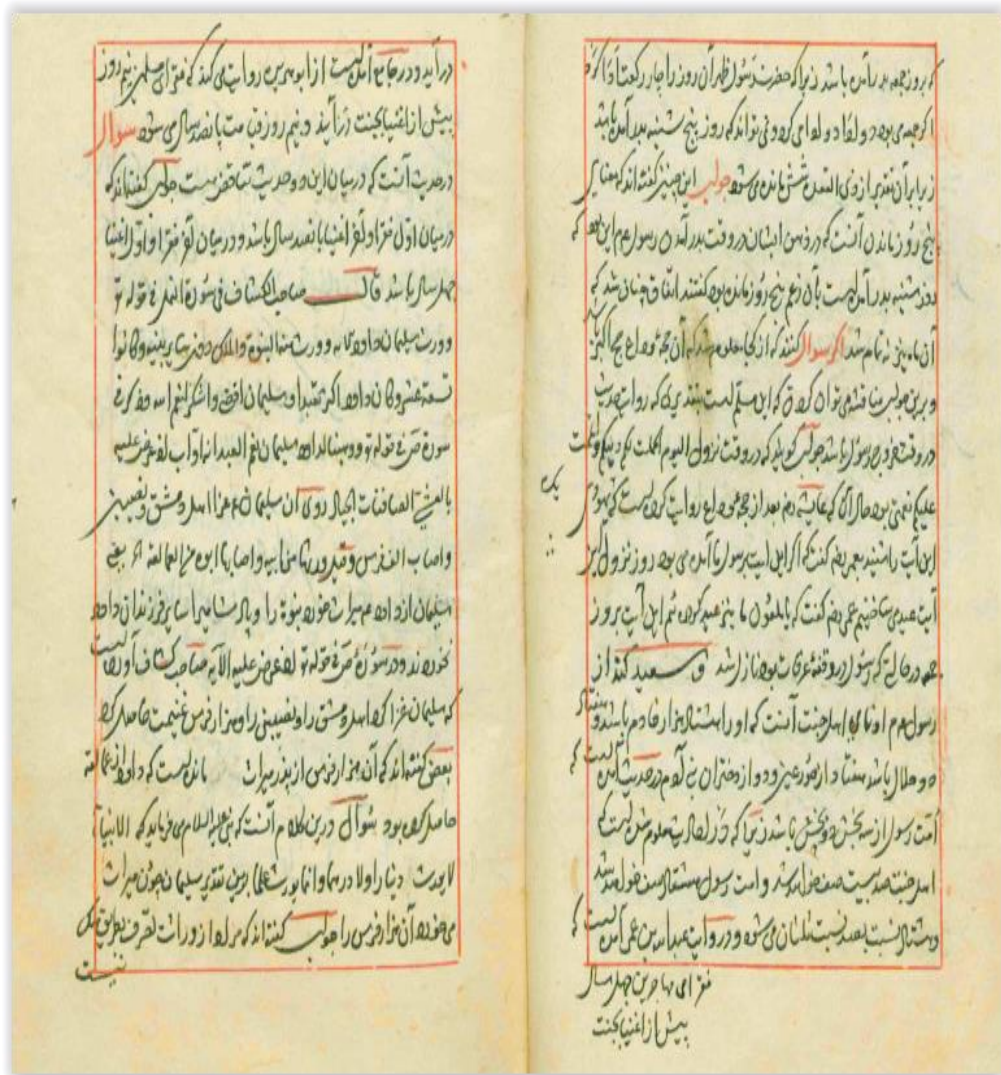 که بروز جمعه بدر آمده باشد زیرا که حضرت رسول ظهر آن روز را چار رکعت ادا کرد
اگر جمعه می بود دو رکعت ادا می کرد و نمی تواند که روز پنج شنبه بدر آمده باشد
زیرا بر آن تقدیر از ذی القعده شش مانده می شود جواب این چنین گفته اند که معنای
پنج روز ماندن آنست که در ذهن ایشان در وقت بدر آمدن رسول عم این بود که
روز شنبه بدر آمده است بآن زعم پنج روز مانده بود گفتند اتفاق چنان شد که
آن ماه تمام شد اگر سوال کنند که از کجا معلوم شد که آن حجة وداع حج اکبر
و برین جواب مناقشه می توان کرد که این مسلم است بتقدیری که روایت حدیث
در وقت خروج رسول باشد جواب گوید که در وقت نزول الیوم اکملت لکم دینکم و اتممت
علیکم نعمتی بود حال آن که عایشه رضه بعد از حجة وداع روایت کرده است که یهودی
یک
این آیت را شنید بعمر رضه گفت که اگر این آیت برسول ما آمده می بود روز نزول این
آیت عید می ساختیم عمر رضه گفت که یا ملعون ما نیز عید کرده ایم این آیت بروز
جمعه در حالتی که رسول در وقفه عرفات بود نازل شد و سعید گفت از
رسول عم ادنای اهل جنت آنست که او را هشتاد هزار خادم باشد و هفتاد
دو حلال باشد هفتاد از حور عین و دو از دختران بنی آدم در حدیث آمده است که
امت رسول از سه بخش دو بخش باشد زیرا که در احادیث معلوم شده است که
اهل جنت صد بیست صف خواهد شد و امت رسول هشتاد صف خواهد شد
و هشتاد نسبت بصد بیست ثلثان می شود و در روایت عبدالله بن عمر آمده است که
فقرای مهاجرین چهل سال
پیش از اغنیا بجنت
در آید و در جامع آمده است از ابو هریره روایت می کند که فقرای مسلمین نیم روز
پیش از اغنیا بجنت در آیند و نیم روز قیامت پانصد سال می شود سوال
در حدیث آنست که در میان این دو حدیث تناقض است جواب گفته اند که
در میان اول فقرا و آخر اغنیا پانصد سال باشد و در میان آخر فقرا و اول اغنیا
چهل سال باشد قال صاحب الکشاف فی سورة النمل فی قوله تع
و ورث سلیمان داود الآیه و ورث منه النبوة والملک دون سایر بنیه وکانوا
تسعة عشر وکان داود اکثر تعبدا و سلیمان اقضی واشکر لنعم الله وذکر فی
سورة ص فی قوله تع ووهبنا لداود سلیمان نعم العبد انه اواب اذ عرض علیه
بالعشی الصافنات الجیاد روی ان سلیمان عم غزا اهل دمشق و نصیبین
واصاب الف فرس و قیل ورثها من ابیه واصابها ابوه من العمالقة یعنی
سلیمان از داود عم میراث خورد نبوت را و پادشاهی را سایر فرزندان داود
نخوردند و در سوره ص فی قوله تع اذ عرض علیه الآیه صاحب کشاف آورده است
که سلیمان غزا کرد اهل دمشق را و نصیبین را و هزار فرس غنیمت حاصل کرد
بعضی گفته اند که آن هزار فرس از پدر میراث مانده است که داود از عمالقه
حاصل کرده بود سوال درین کلام آنست که نبی علیه السلام می فرماید که الانبیاء
لا یورث دینارا ولا درهما وانما یورث علما برین تقدیر سلیمان چون میراث
می خورد آن هزار فرس را جواب گفته اند که مراد از وراثت تصرف بطریق ملک
نیست